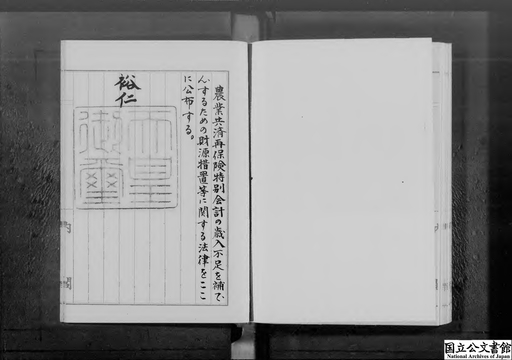 農業共済再保険特別会計の歳入不足を補て
んするための財源措置等に関する法律をここ
に公布する。
裕仁
天皇
御璽
国立公文書館
National Archives of Japan